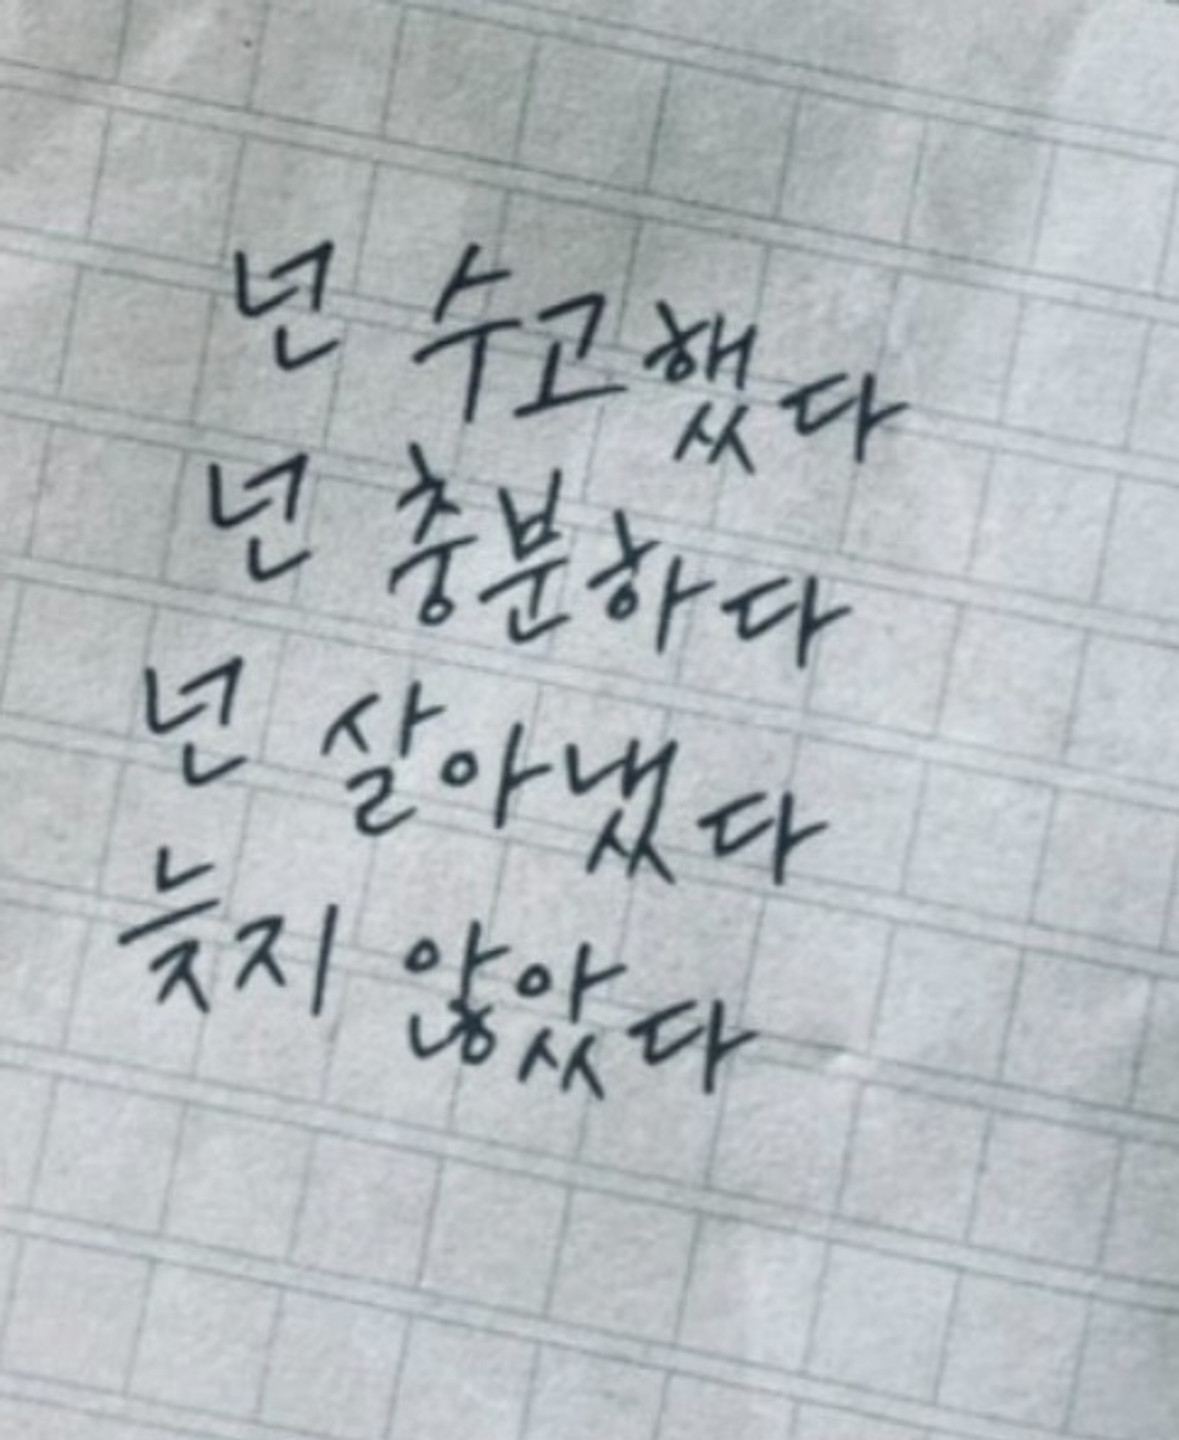 넌 수고했다
넌 충분하다
넌 살아냈다
늦지 않았다